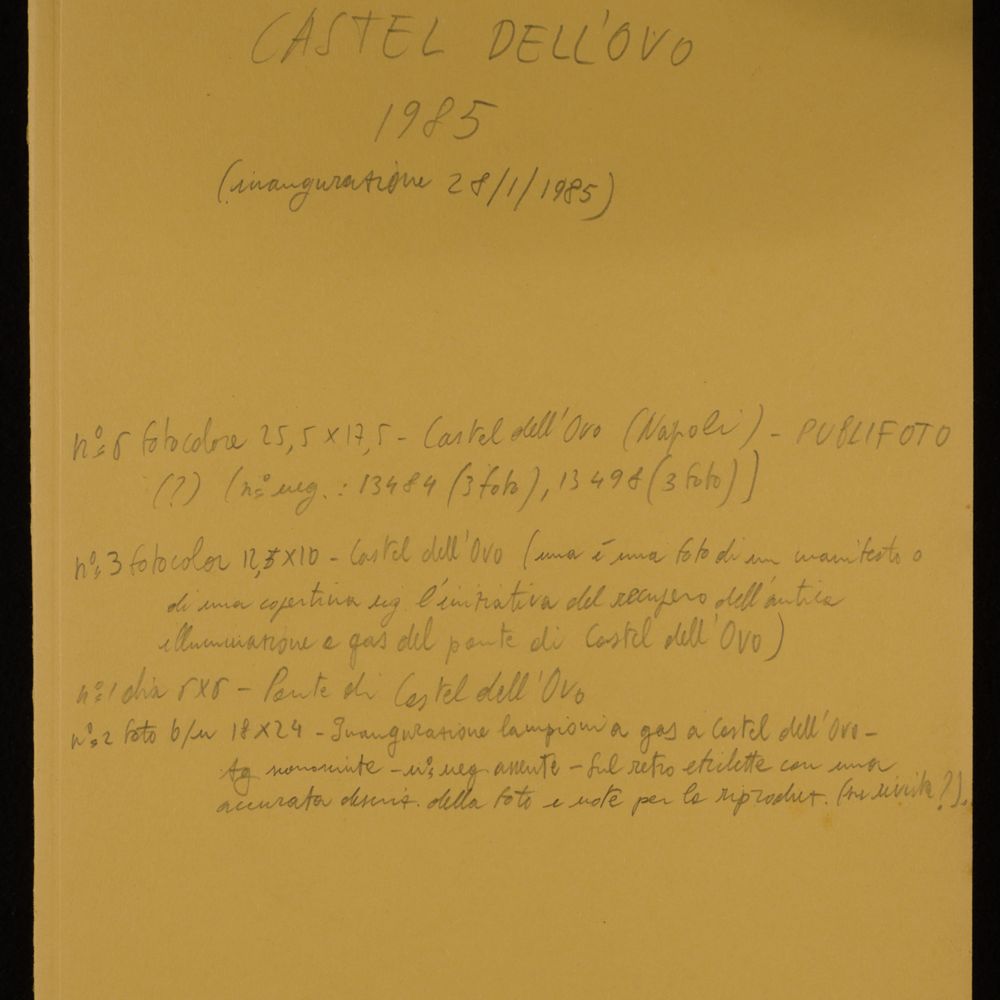 CASTEL DELL'OVO
1985
(inaugurazione 28/1/1985)
n° 6 fotocolore 25,5 X 17,5 - Castel dell'Ovo (Napoli) - PUBLIFOTO
(?) (n° neg. : 13484 (3 foto), 13498 (3 foto)]
n° 3 fotocolor 12,5 X 10 - Castel dell'Ovo (una è una foto di un manifesto o
di una copertina rig. l'iniziativa del recupero dell'antica
illuminazione a gas del ponte di Castel dell'Ovo)
n° 1 dia 6X6 - Ponte di Castel dell'Ovo
n° 2 foto b/n 18 X 24 - Inaugurazione lampioni a gas a Castel dell'Ovo -
Ag sconosciuta - n° neg assente - Sul retro etichette con una
accurata descriz. della foto e note per la riproduz. (su rivista?).